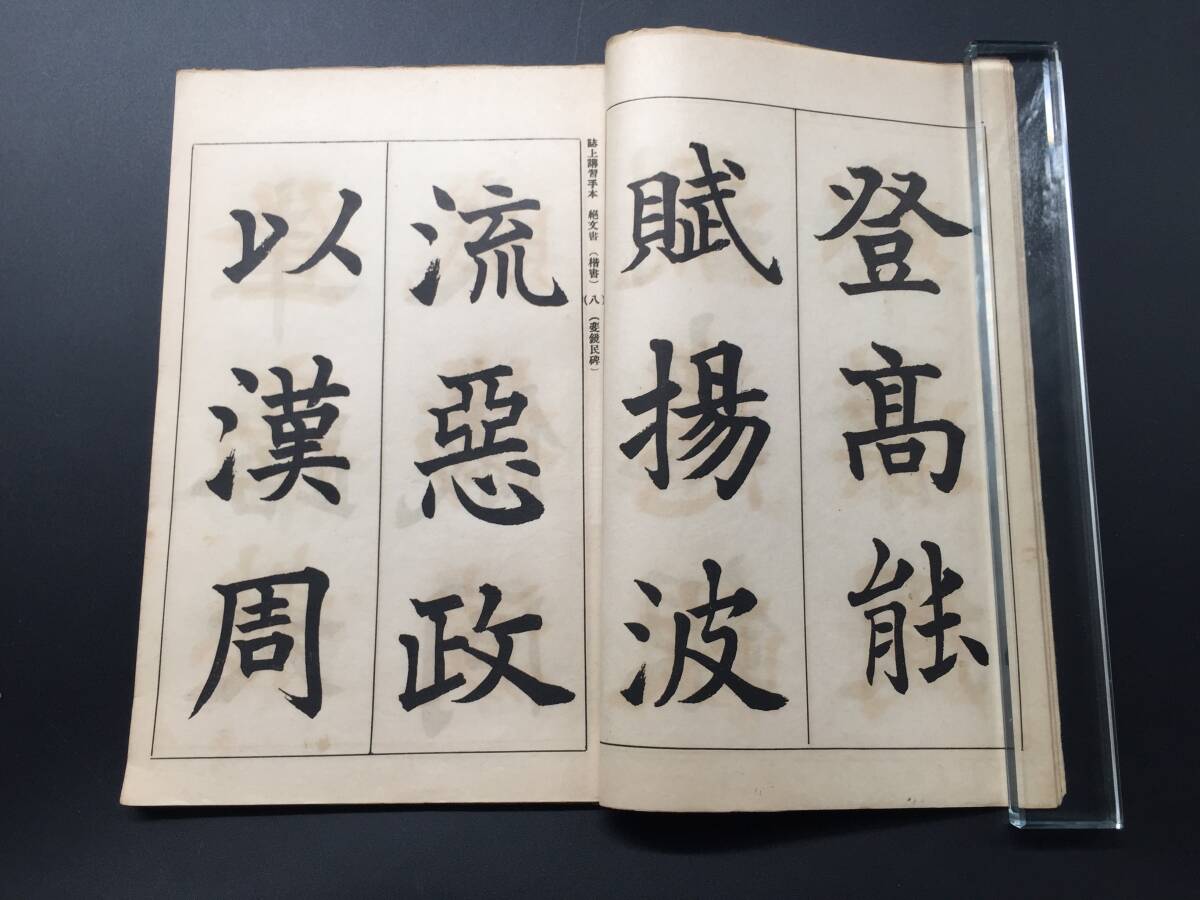 登髙能
賦揚波
誌上講習手本 絕文書 (楷書) (八) (斐鏡民碑)
流惡政
以漢周